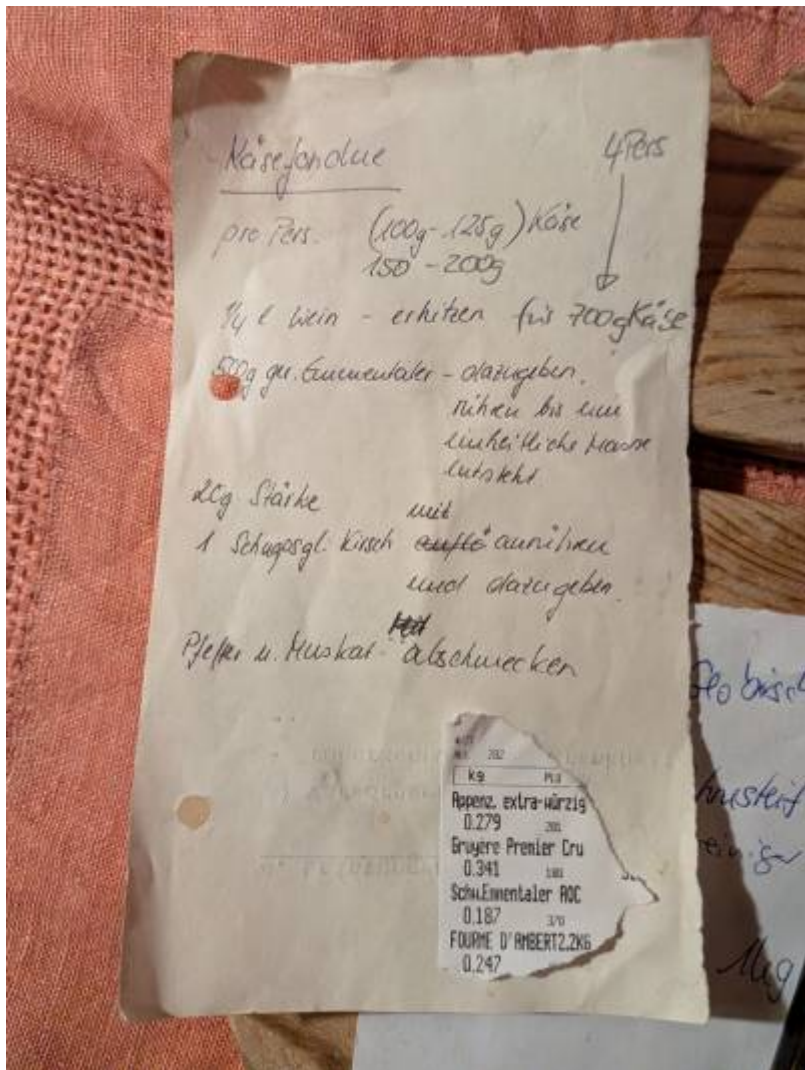 Käsefondue
4 Pers
pro Pers. (100g-125g) Käse
150-200g
1/4 l Wein - erhitzen für 700g Käse
500g ger. Emmentaler - dazugeben,
rühren bis eine
einheitliche Masse
entsteht
20g Stärke mit
1 Schnapsgl. Kirsch anrühren
und dazugeben.
Pfeffer u. Muskat - abschmecken
282
kg PLU
Appenz. extra-würzig
0.279 201
Gruyere Premier Cru
0.341
Schw.Emmentaler AOC
0.187 370
FOURME D'AMBERT2.2KG
0.247
1kg